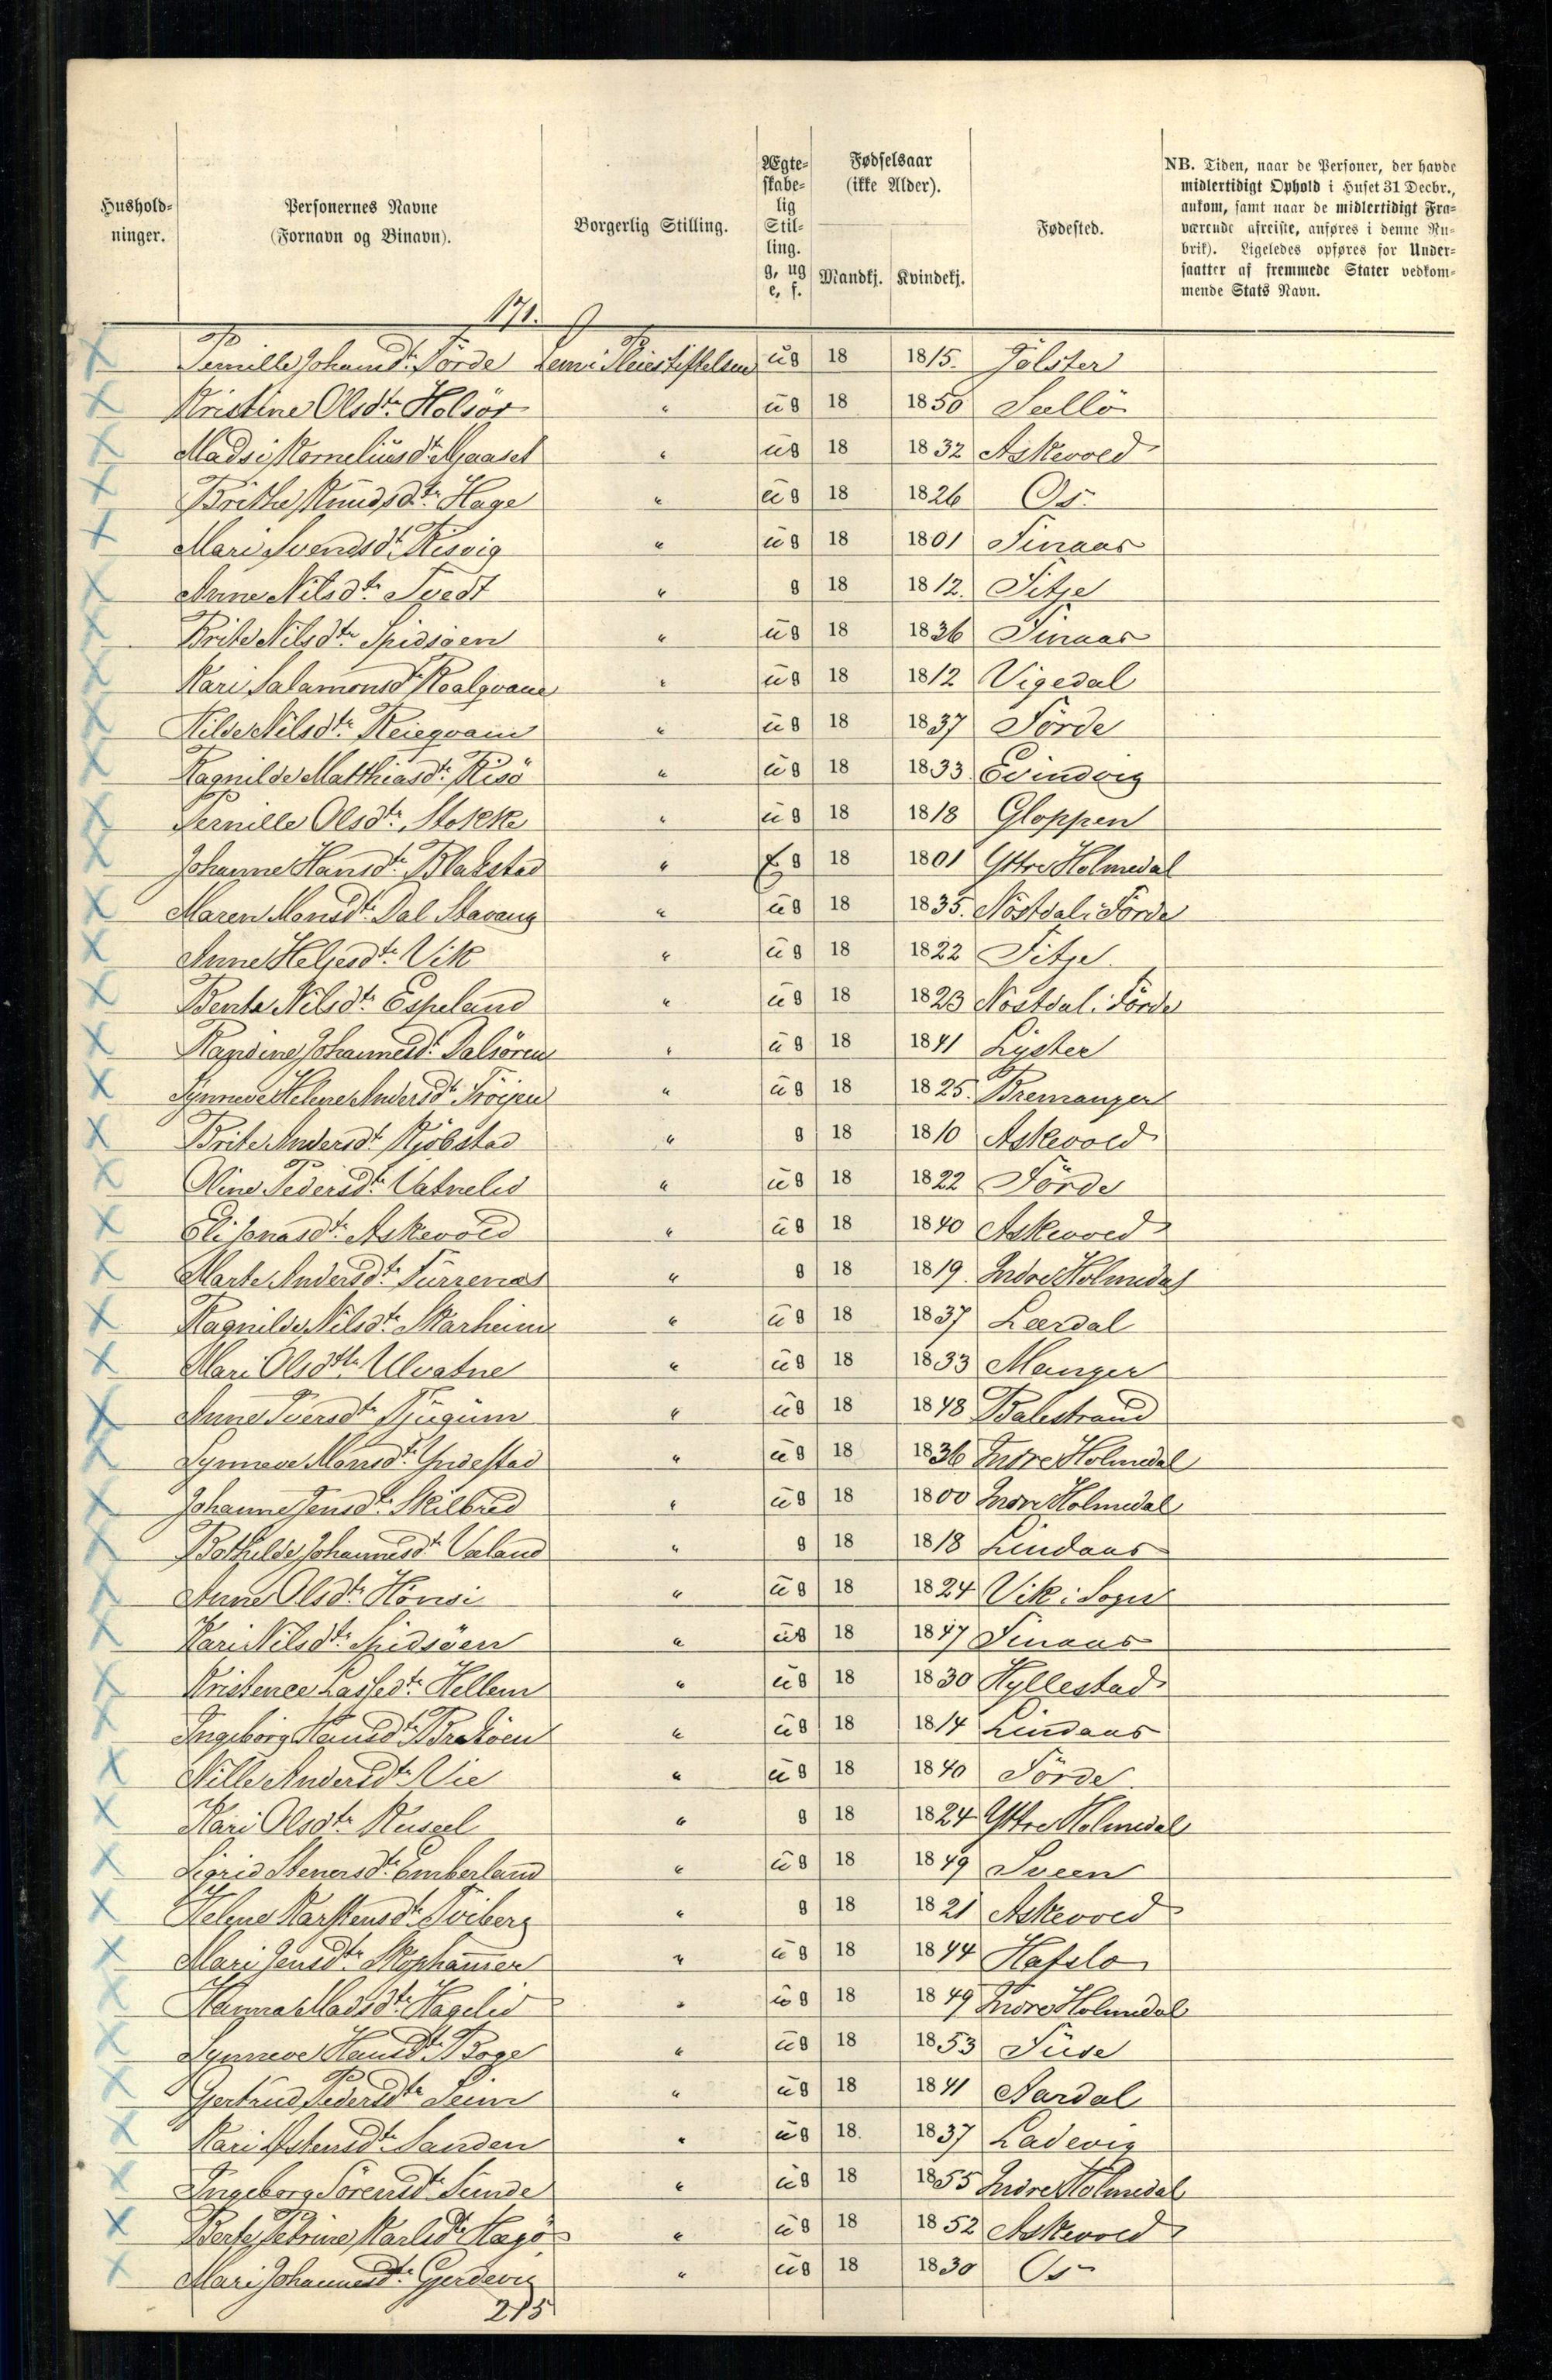 Hushold-
ninger.
Personernes Navne
(Fornavn og Binavn).
Borgerlig Stilling.
Ægte-
skabe-
lig
Stil-
ling.
g, ug
e, f.
Fødselsaar
(ikke Alder).
Mandkj. Kvindekj.
Fødested.
NB. Tiden, naar de Personer, der havde
midlertidigt Ophold i Huset 31 Decbr.,
ankom, samt naar de midlertidigt Fra-
værende afreiste, anføres i denne Ru-
brik). Ligeledes opføres for Under-
saatter af fremmede Stater vedkom-
mende Stats Navn.
171.
Pernille Johansdtr. Förde Lem i Pleiestiftelsen ug 18 1815. Jölster
Kristine Olsdtr. Holsör " ug 18 1850 Sellö
Madsi Korneliusdtr. " ug 18 1832 Askevold
Brithe Knudsdtr. Hage " ug 18 1826 Os
Mari Svendsdtr. Risvig " ug 18 1801 Finaas
Anne Nilsdtr. Tvedt " g 18 1812. Fitje
Brite Nilsdtr. Spidsöen " ug 18 1836 Finaas
Kari Salamonsdtr. " ug 18 1812 Vigedal
Nilsdtr. " ug 18 1837 Förde
Ragnilde Matthiasdtr. Risö " ug 18 1833. Evindvig
Pernille Olsdtr. Stokke " ug 18 1818 Gloppen
Johanne Hansdtr. Blakstad " g 18 1801 Yttre Holmedal
Maren Monsdtr. Dal Stavang " ug 18 1835. Nöstdal i Förde
Anne Heljesdtr. Vik " ug 18 1822 Fitje
Benta Nilsdtr. Espeland " ug 18 1823 Nöstdal i Förde
Randine Johannesdtr. Dalsören " ug 18 1841 Lyster
Synneve Helene Andersdtr. " ug 18 1825. Bremanger
Brite Andersdtr. Kjöbstad " g 18 1810 Askevold
Oline Pedersdtr. Vatnelid " ug 18 1822 Förde
Eli Jonasdtr. Askevold " ug 18 1840 Askevold
Marte Andersdtr. Furrenæs " g 18 1819. Indre Holmedal
Ragnilde Nilsdtr. Skarheim " ug 18 1837 Lærdal
Mari Olsdtr. Ulvatne " ug 18 1833 Manger
Anne Iversdtr. Tjugum " ug 18 1848 Balestrand
Synneve Monsdtr. Yndestad " ug 18 1836 Indre Holmedal
Johanne Jensdtr. Skilbred " ug 18 1800 Indre Holmedal
Bothilde Johannesdtr. Væland " g 18 1818 Lindaas
Anne Olsdtr. Hönsi " ug 18 1824 Vik i Sogn
Kari Nilsdtr. Spidsöen " ug 18 1847 Finaas
Kristence Lassedtr. Hellem " ug 18 1830 Hyllestad
Ingeborg Hansdtr. Bratöen " ug 18 1814 Lindaas
Nille Andersdtr. Vie " ug 18 1840 Förde
Kari Olsdtr. " g 18 1824 Yttre Holmedal
Sigrid Stenersdtr. Emberland " ug 18 1849 Sveen
Helene Karstensdtr. Tviberg " g 18 1821 Askevold
Mari Jensdtr. Skophammer " ug 18 1844 Hafslo
Hanna Madsdtr. Hagelid " ug 18 1849 Indre Holmedal
Synneve Hansdtr. Boge " ug 18 1853 Fuse
Gertrud Pedersdtr. Seim " ug 18 1841 Aardal
Kari Østensdtr. Sanden " ug 18. 1837 Ladevig
Ingeborg Sörensdtr. Sunde " ug 18 1855 Indre Holmedal
Berte Petrine Karlsdtr. Hægö " ug 18 1852 Askevold
Mari Johannesdtr. Gjerdevig " ug 18 1830 Os
215